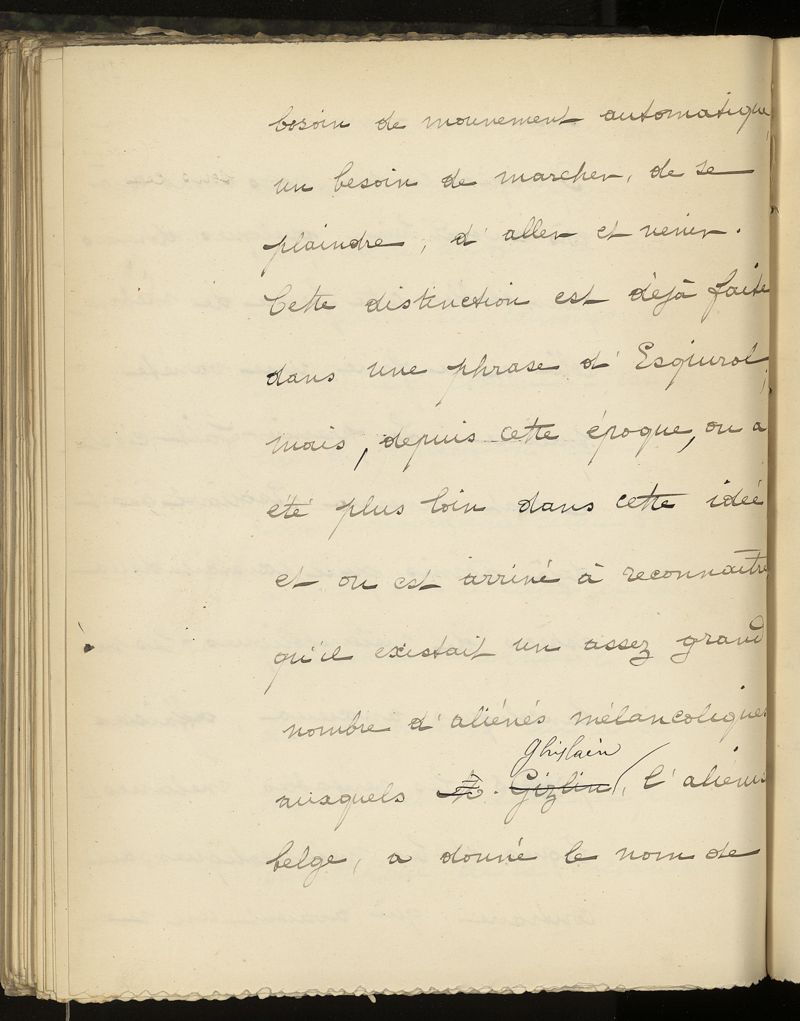 besoin de mouvement automatique,
un besoin de marcher, de se
plaindre, d'aller et venir.
Cette distinction est déjà faite
dans une phrase d'Esquirol,
mais, depuis cette époque, on a
été plus loin dans cette idée
et on est arrivé à reconnaître
qu'il existait un assez grand
nombre d'aliénés mélancoliques
Ghislain
auxquels Gizlin, l'aliéniste
belge, a donné le nom de